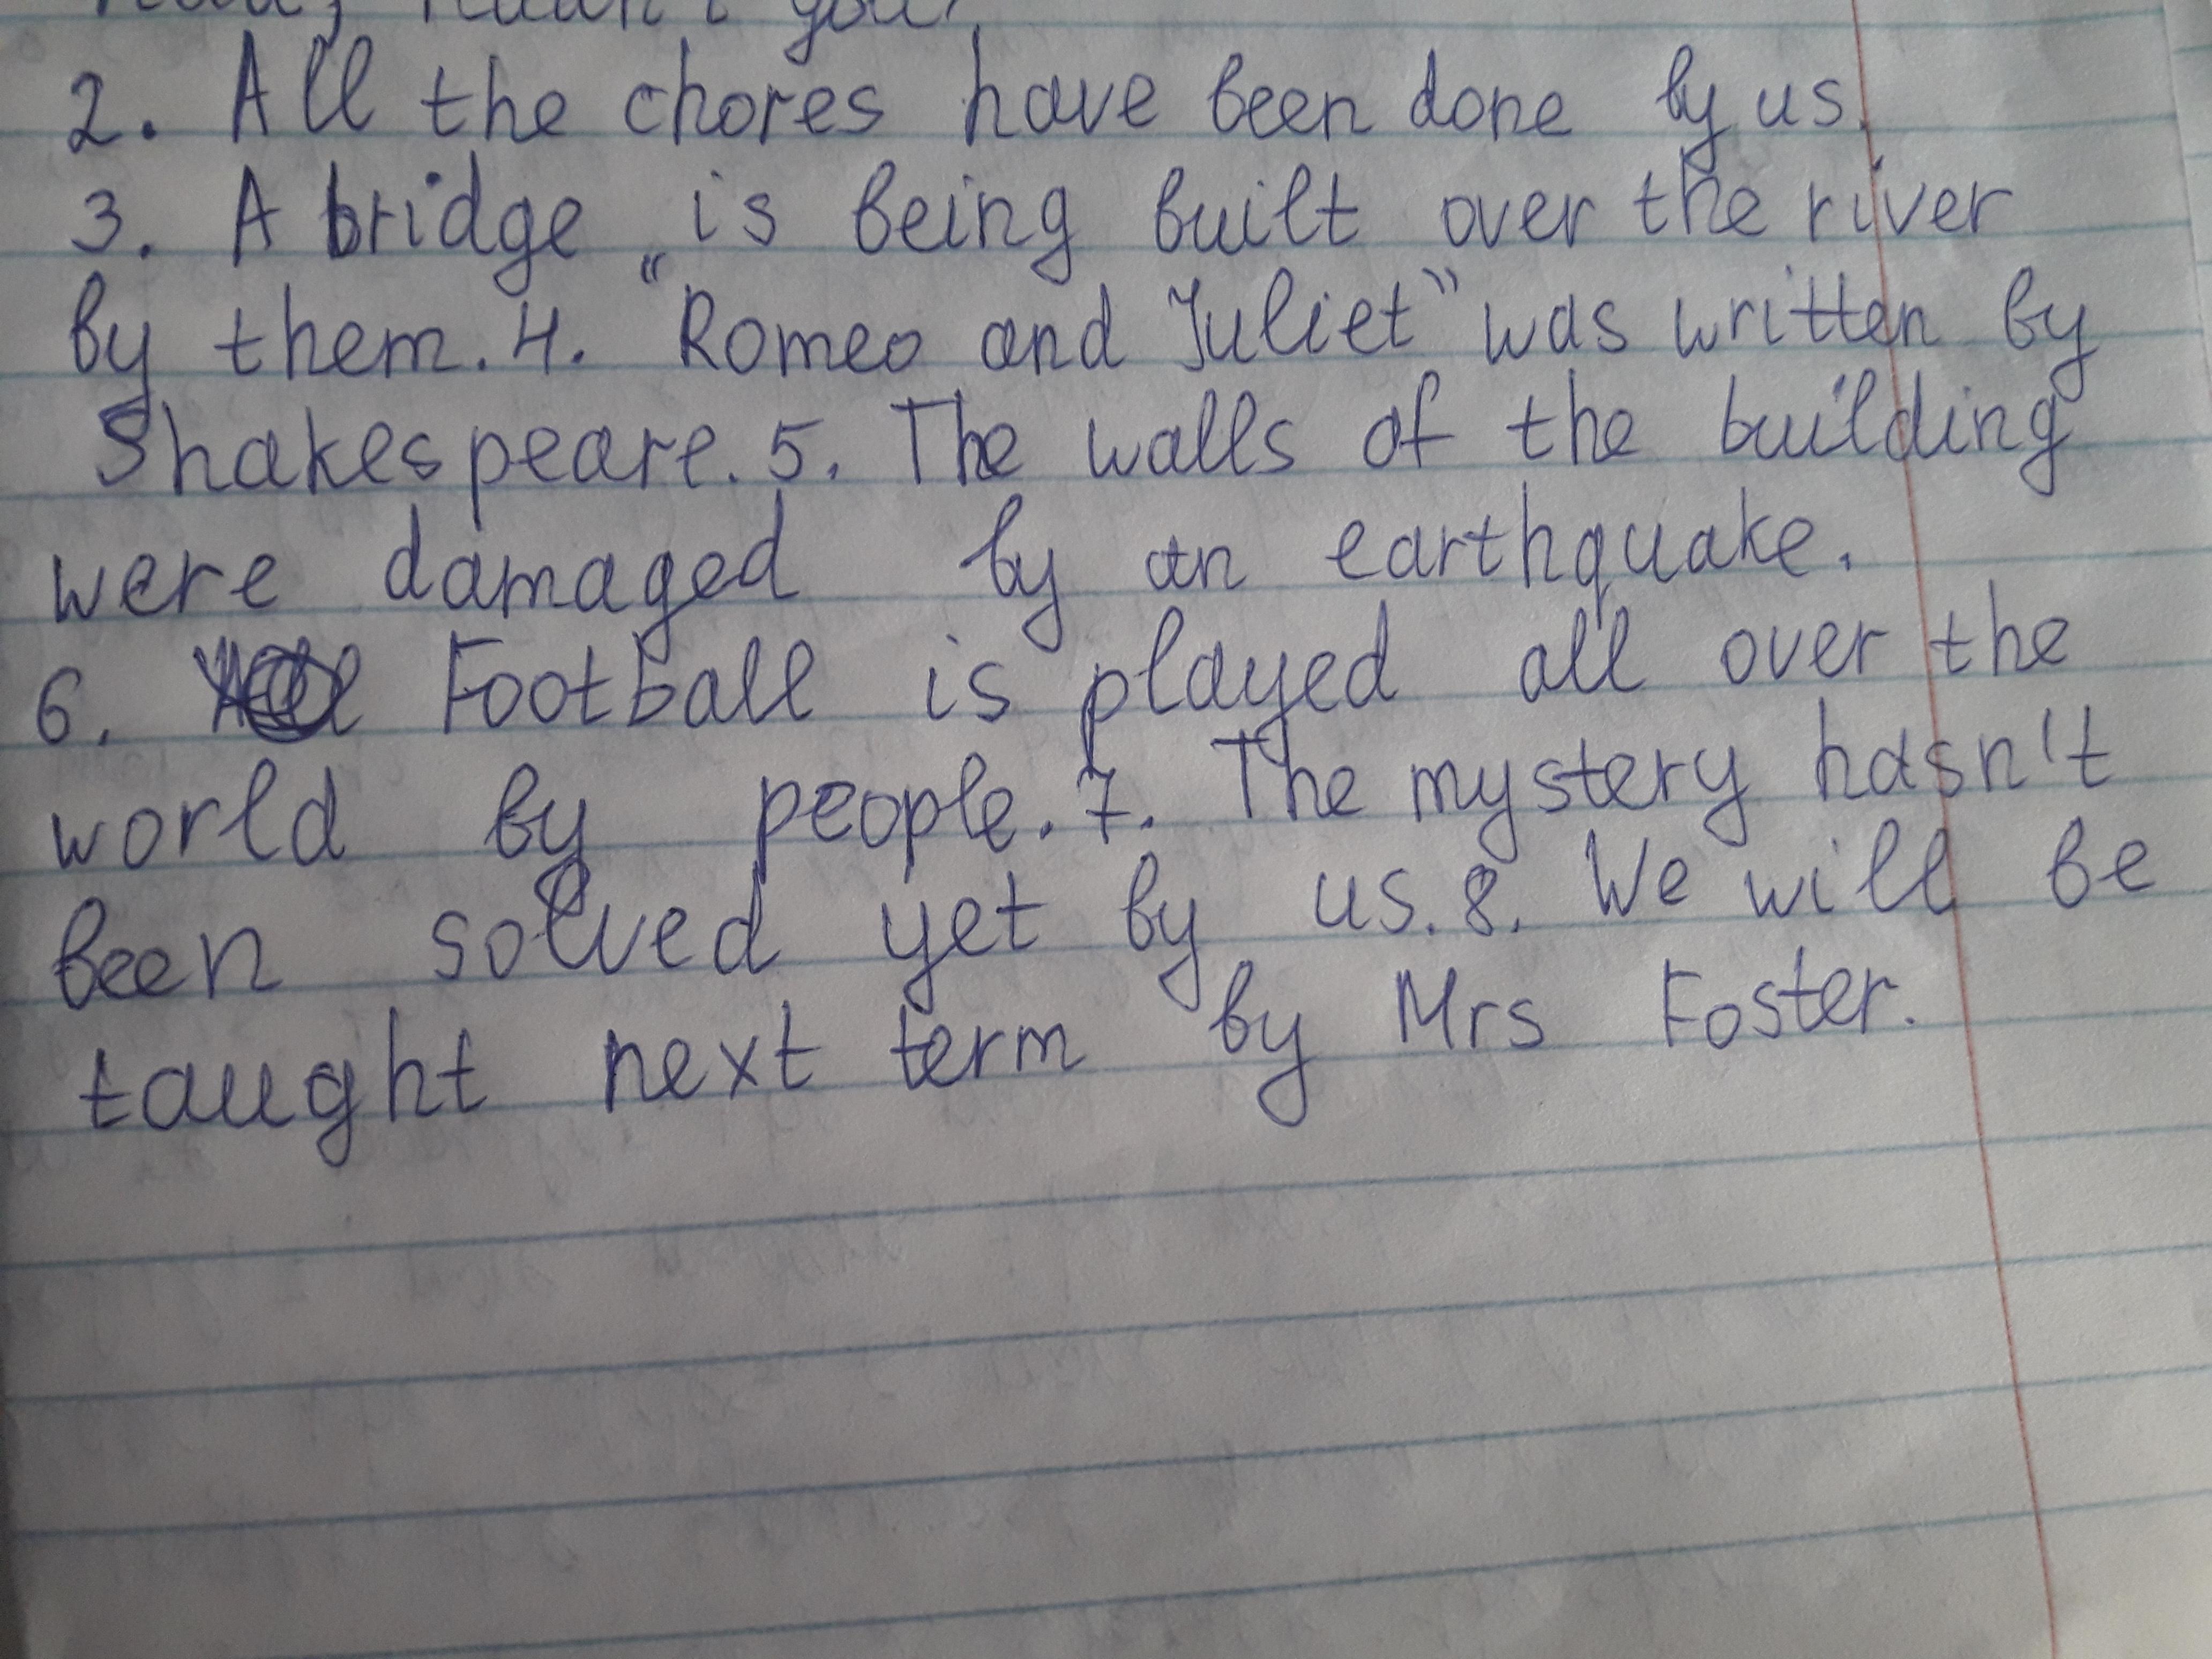 you?
2. All the chores have been done by us.
3. A bridge is being built over the river
by them. 4. "Romeo and Juliet" was written by
Shakespeare. 5. The walls of the building
were damaged by an earthquake.
6. Football is played all over the
world by people. 7. The mystery hasn't
been solved yet by us. 8. We will be
taught next term by Mrs Foster.